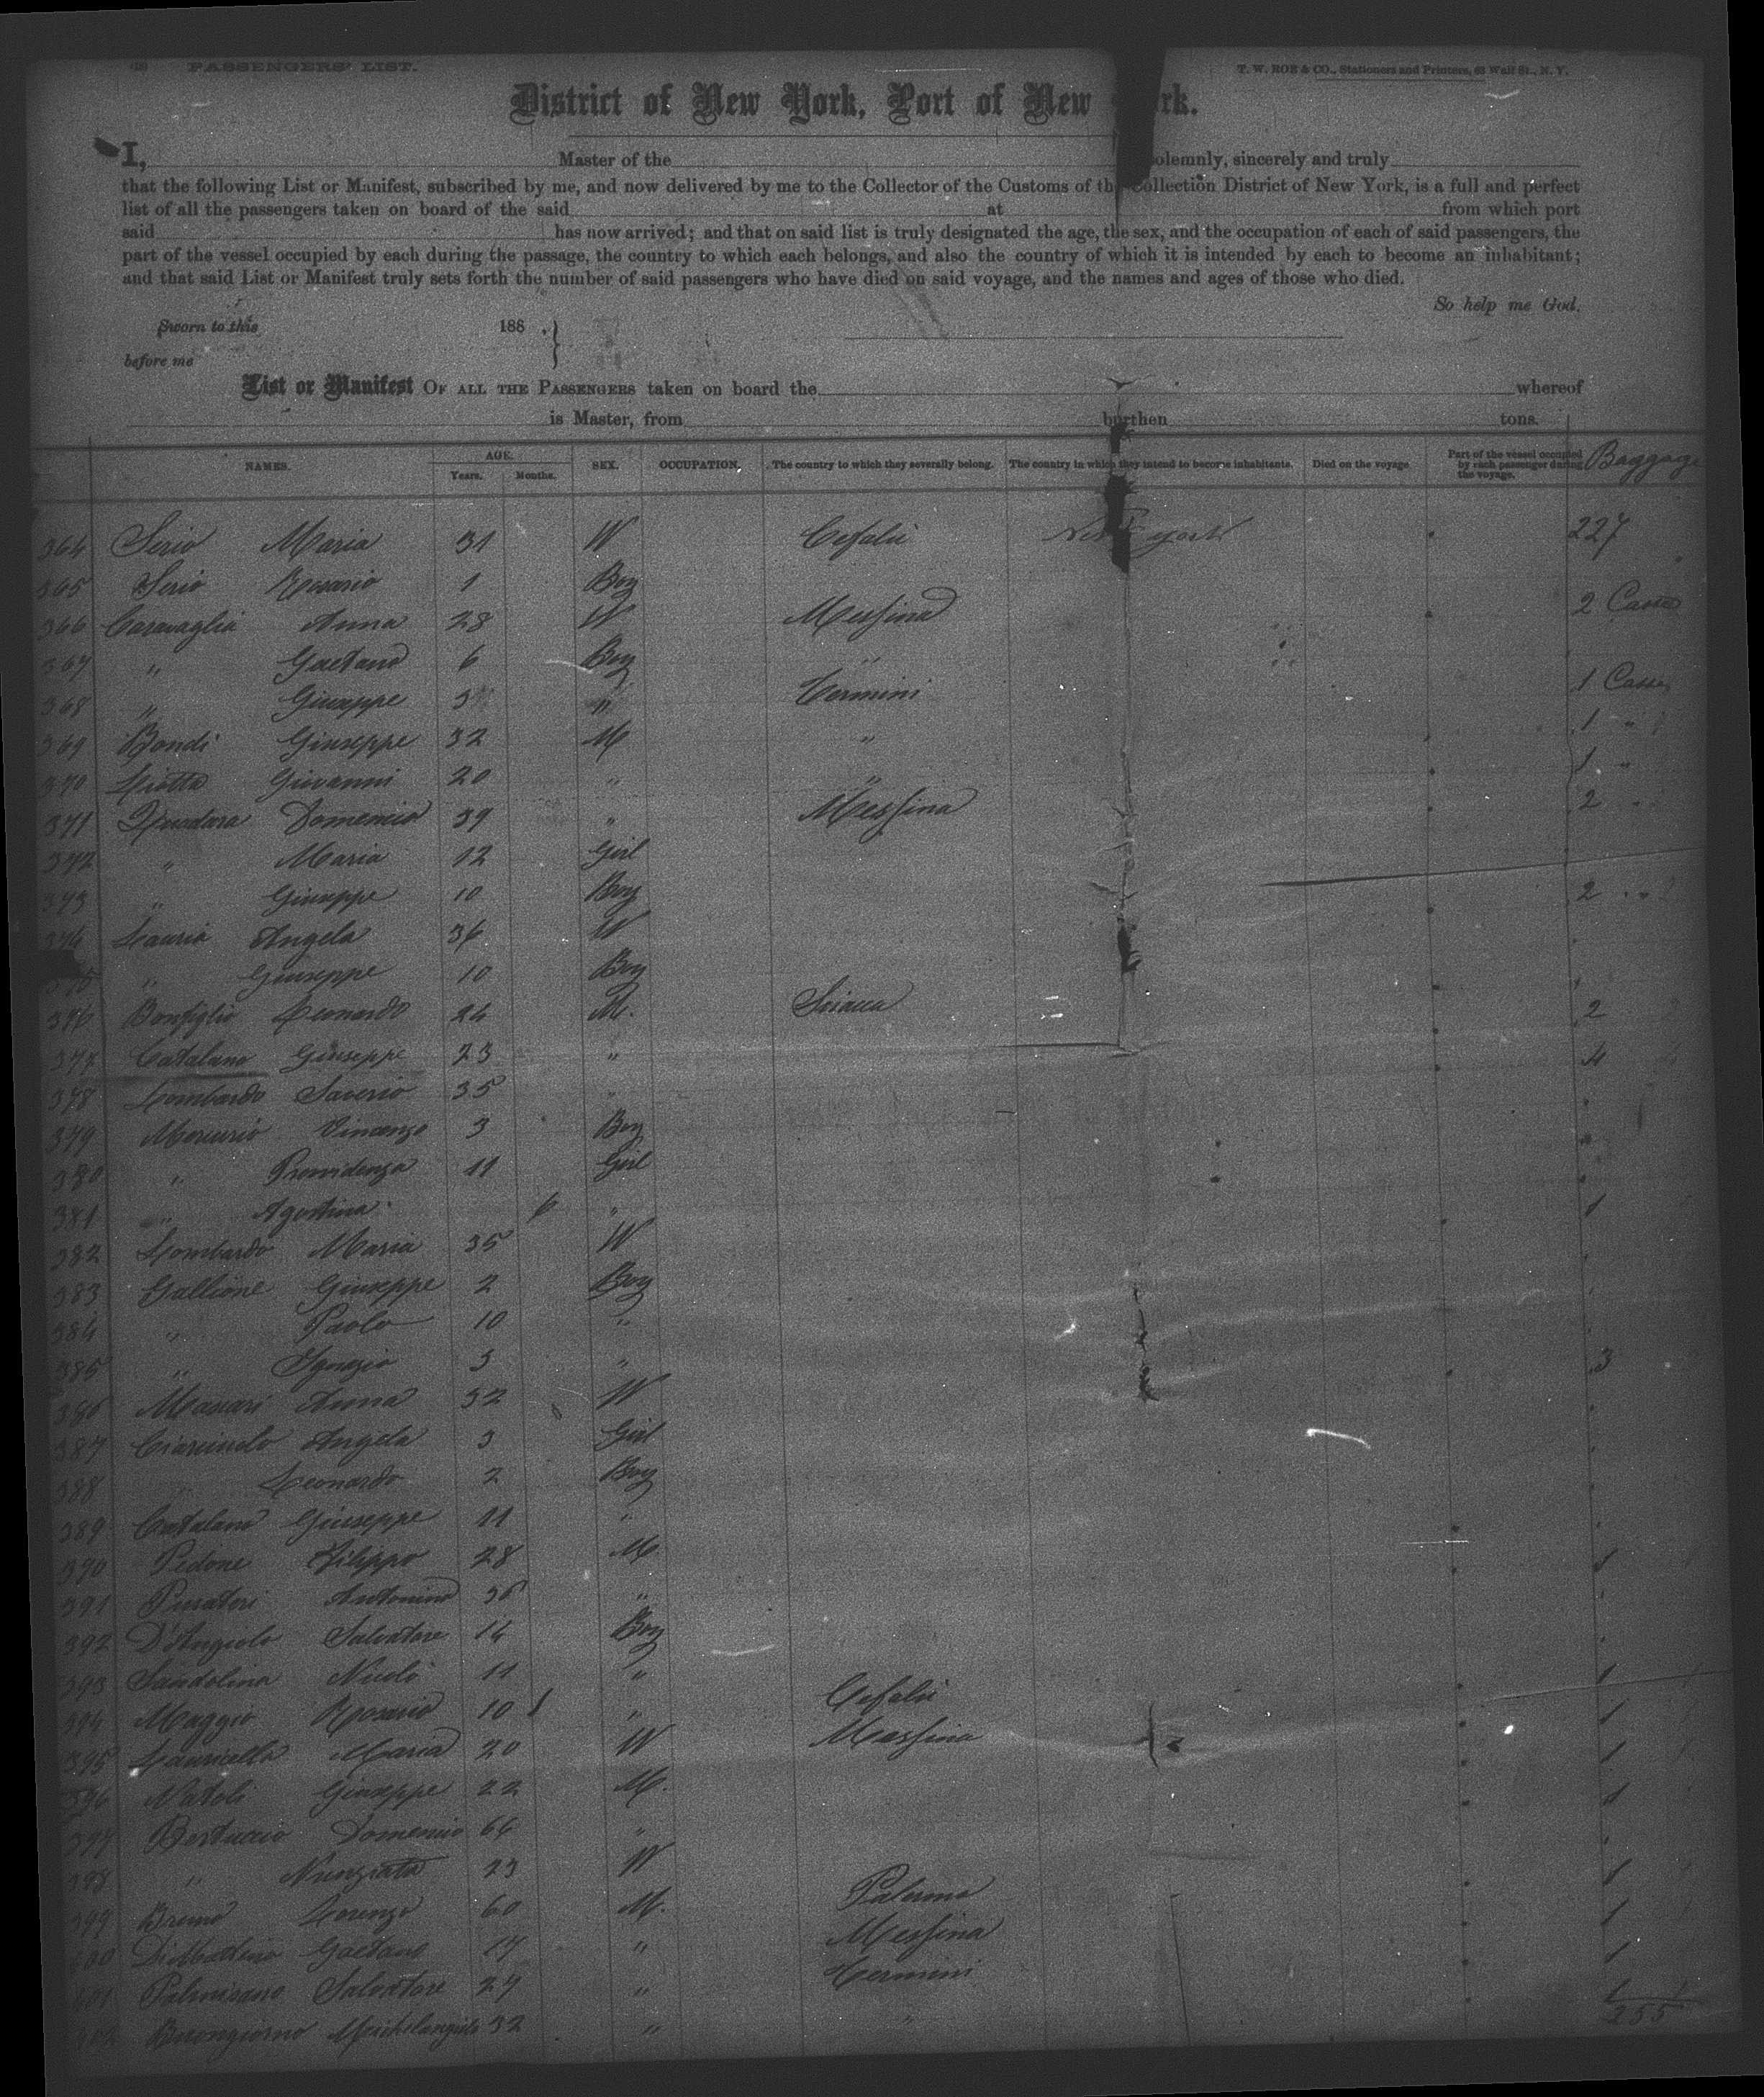 PASSENGERS' LIST.
T. W. ROE & CO., Stationers and Printers, 63 Wall St., N. Y.
District of New York, Port of New rk.
I, Master of the olemnly, sincerely and truly
that the following List or Manifest, subscribed by me, and now delivered by me to the Collector of the Customs of th Collection District of New York, is a full and perfect
list of all the passengers taken on board of the said at from which port
said has now arrived; and that on said list is truly designated the age, the sex, and the occupation of each of said passengers, the
part of the vessel occupied by each during the passage, the country to which each belongs, and also the country of which it is intended by each to become an inhabitant;
and that said List or Manifest truly sets forth the number of said passengers who have died on said voyage, and the names and ages of those who died.
So help me God.
Sworn to this 188 .
before me
List or Manifest OF ALL THE PASSENGERS taken on board the whereof
is Master, from burthen tons.
NAMES. AGE. Years. Months. SEX. OCCUPATION. The country to which they severally belong. The country in which they intend to become inhabitants. Died on the voyage Part of the vessel occupied by each passenger during the voyage. Baggage
364 Serio Maria 31 W Cefalù New York 227
365 Serio Rosario 1 Boy
366 Caravaglia Anna 28 W Messina 2 Casse
367 " Gaetano 6 Boy "
368 " Giuseppe 3 " Termini 1 Casse
369 Bondi Giuseppe 32 M " 1 "
370 Liotta Giovanni 20 " " 1 "
371 Quadara Domenico 39 " Messina 2 "
372 " Maria 12 Girl
373 " Giuseppe 10 Boy 2 "
374 Lauria Angela 36 W
375 " Giuseppe 10 Boy
376 Bonfiglio Leonardo 24 M. Sciacca 2
377 Catalano Giuseppe 23 " 4
378 Lombardo Saverio 35 "
379 Mercurio Vincenzo 3 Boy
380 " Providenza 11 Girl
381 " Agostina 6 " 1
382 Lombardo Maria 35 W
383 Gallione Giuseppe 2 Boy
384 " Paolo 10 "
385 " Ignazio 3 " 3
386 Massari Anna 32 W
387 Angela 3 Girl
388 " Leonardo 2 Boy
389 Catalano Giuseppe 11 "
390 Pedone Filippo 28 M 1
391 Antonino 36 "
392 D'Angiolo Salvatore 14 Boy
393 Sandolina Nicolò 11 " 1
394 Maggio Rosario 10 " Cefalù 1
395 Lauricella Maria 20 W Messina 1
396 Natoli Giuseppe 22 M. 1
397 Bertuccio Domenico 64 "
398 " Nunziata 23 W 1
399 Bruno Lorenzo 60 M. Palermo 1
400 Gaetano 17 " Messina 1
401 Palmisano Salvatore 27 " Termini 1
402 Buongiorno Michelangiolo 32 " "
255